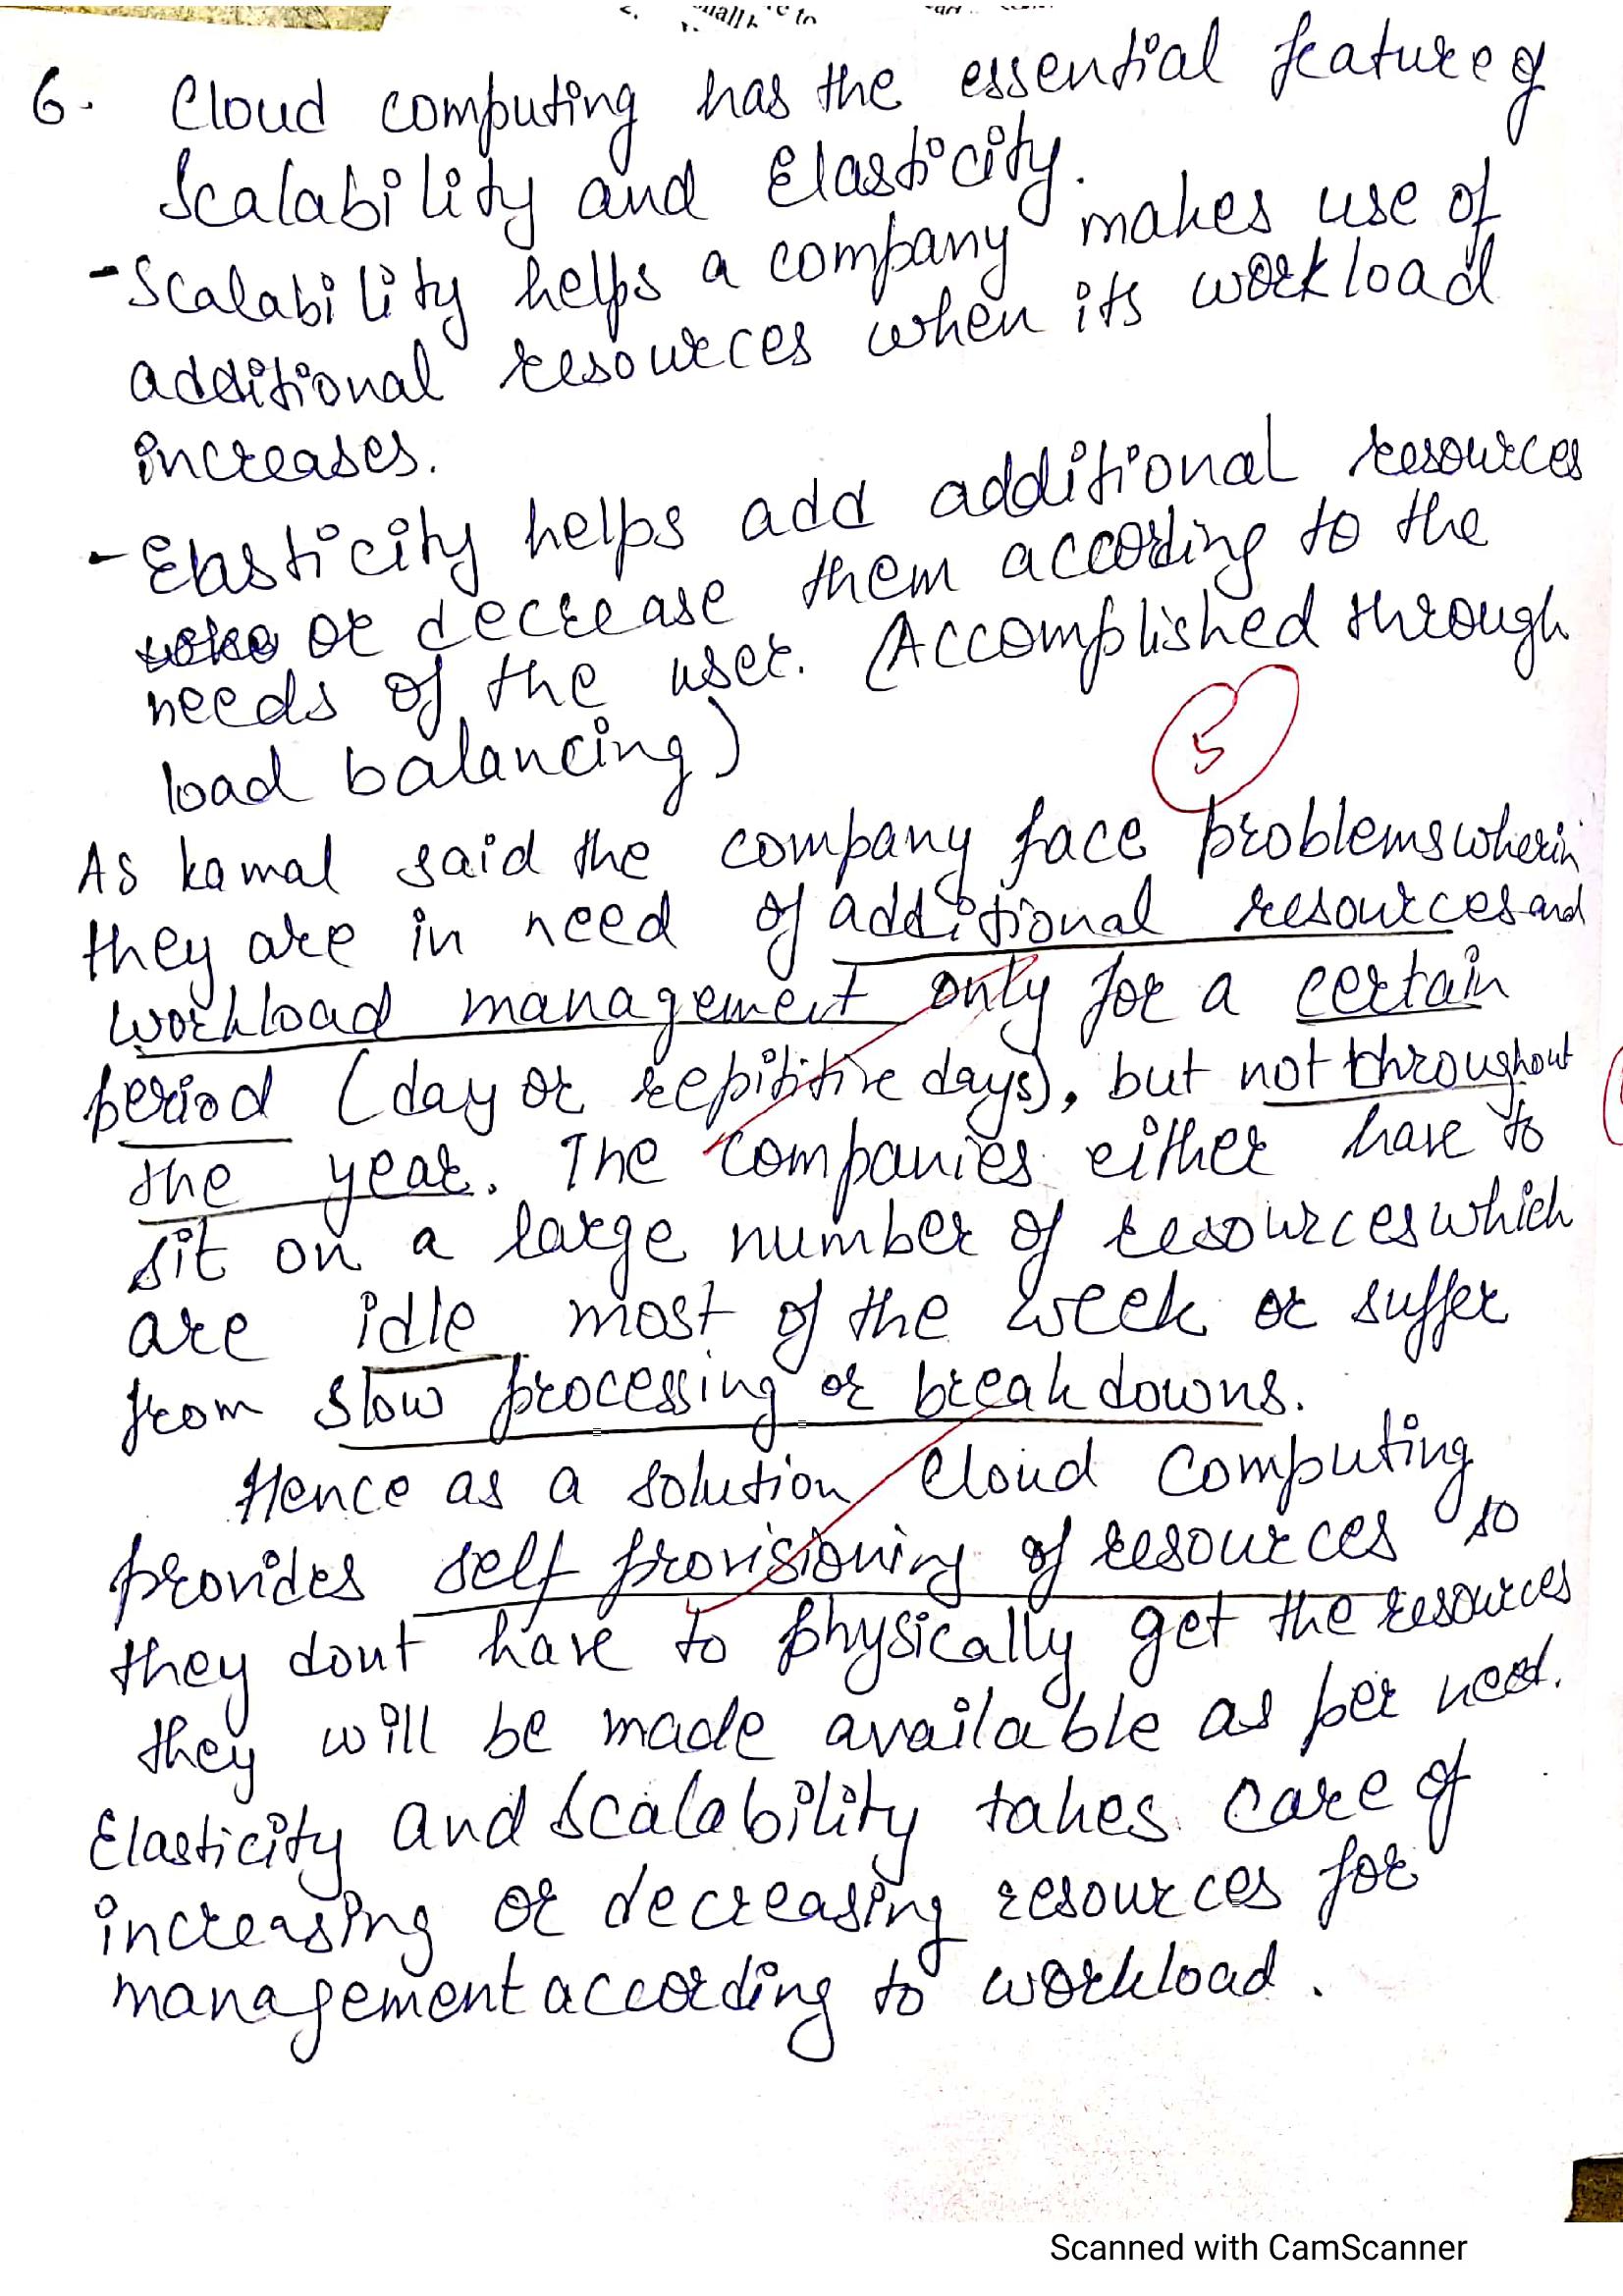 6. Cloud computing has the essential feature of
Scalability and Elasticity.
- Scalability helps a company makes use of
additional resources when its workload
increases.
- Elasticity helps add additional resources
or decrease them according to the
needs of the user. (Accomplished through
load balancing)
5
As kamal said the company face problems wherin
they are in need of additional resources and
workload management only for a certain
period (day or repititive days), but not throughout
the year. The companies either have to
sit on a large number of resources which
are idle most of the week or suffer
from slow processing or breakdowns.
Hence as a solution Cloud Computing
provides self provisioning of resources so
they dont have to physically get the resources
they will be made available as per need.
Elasticity and Scalability takes care of
increasing or decreasing resources for
management according to workload.
Scanned with CamScanner